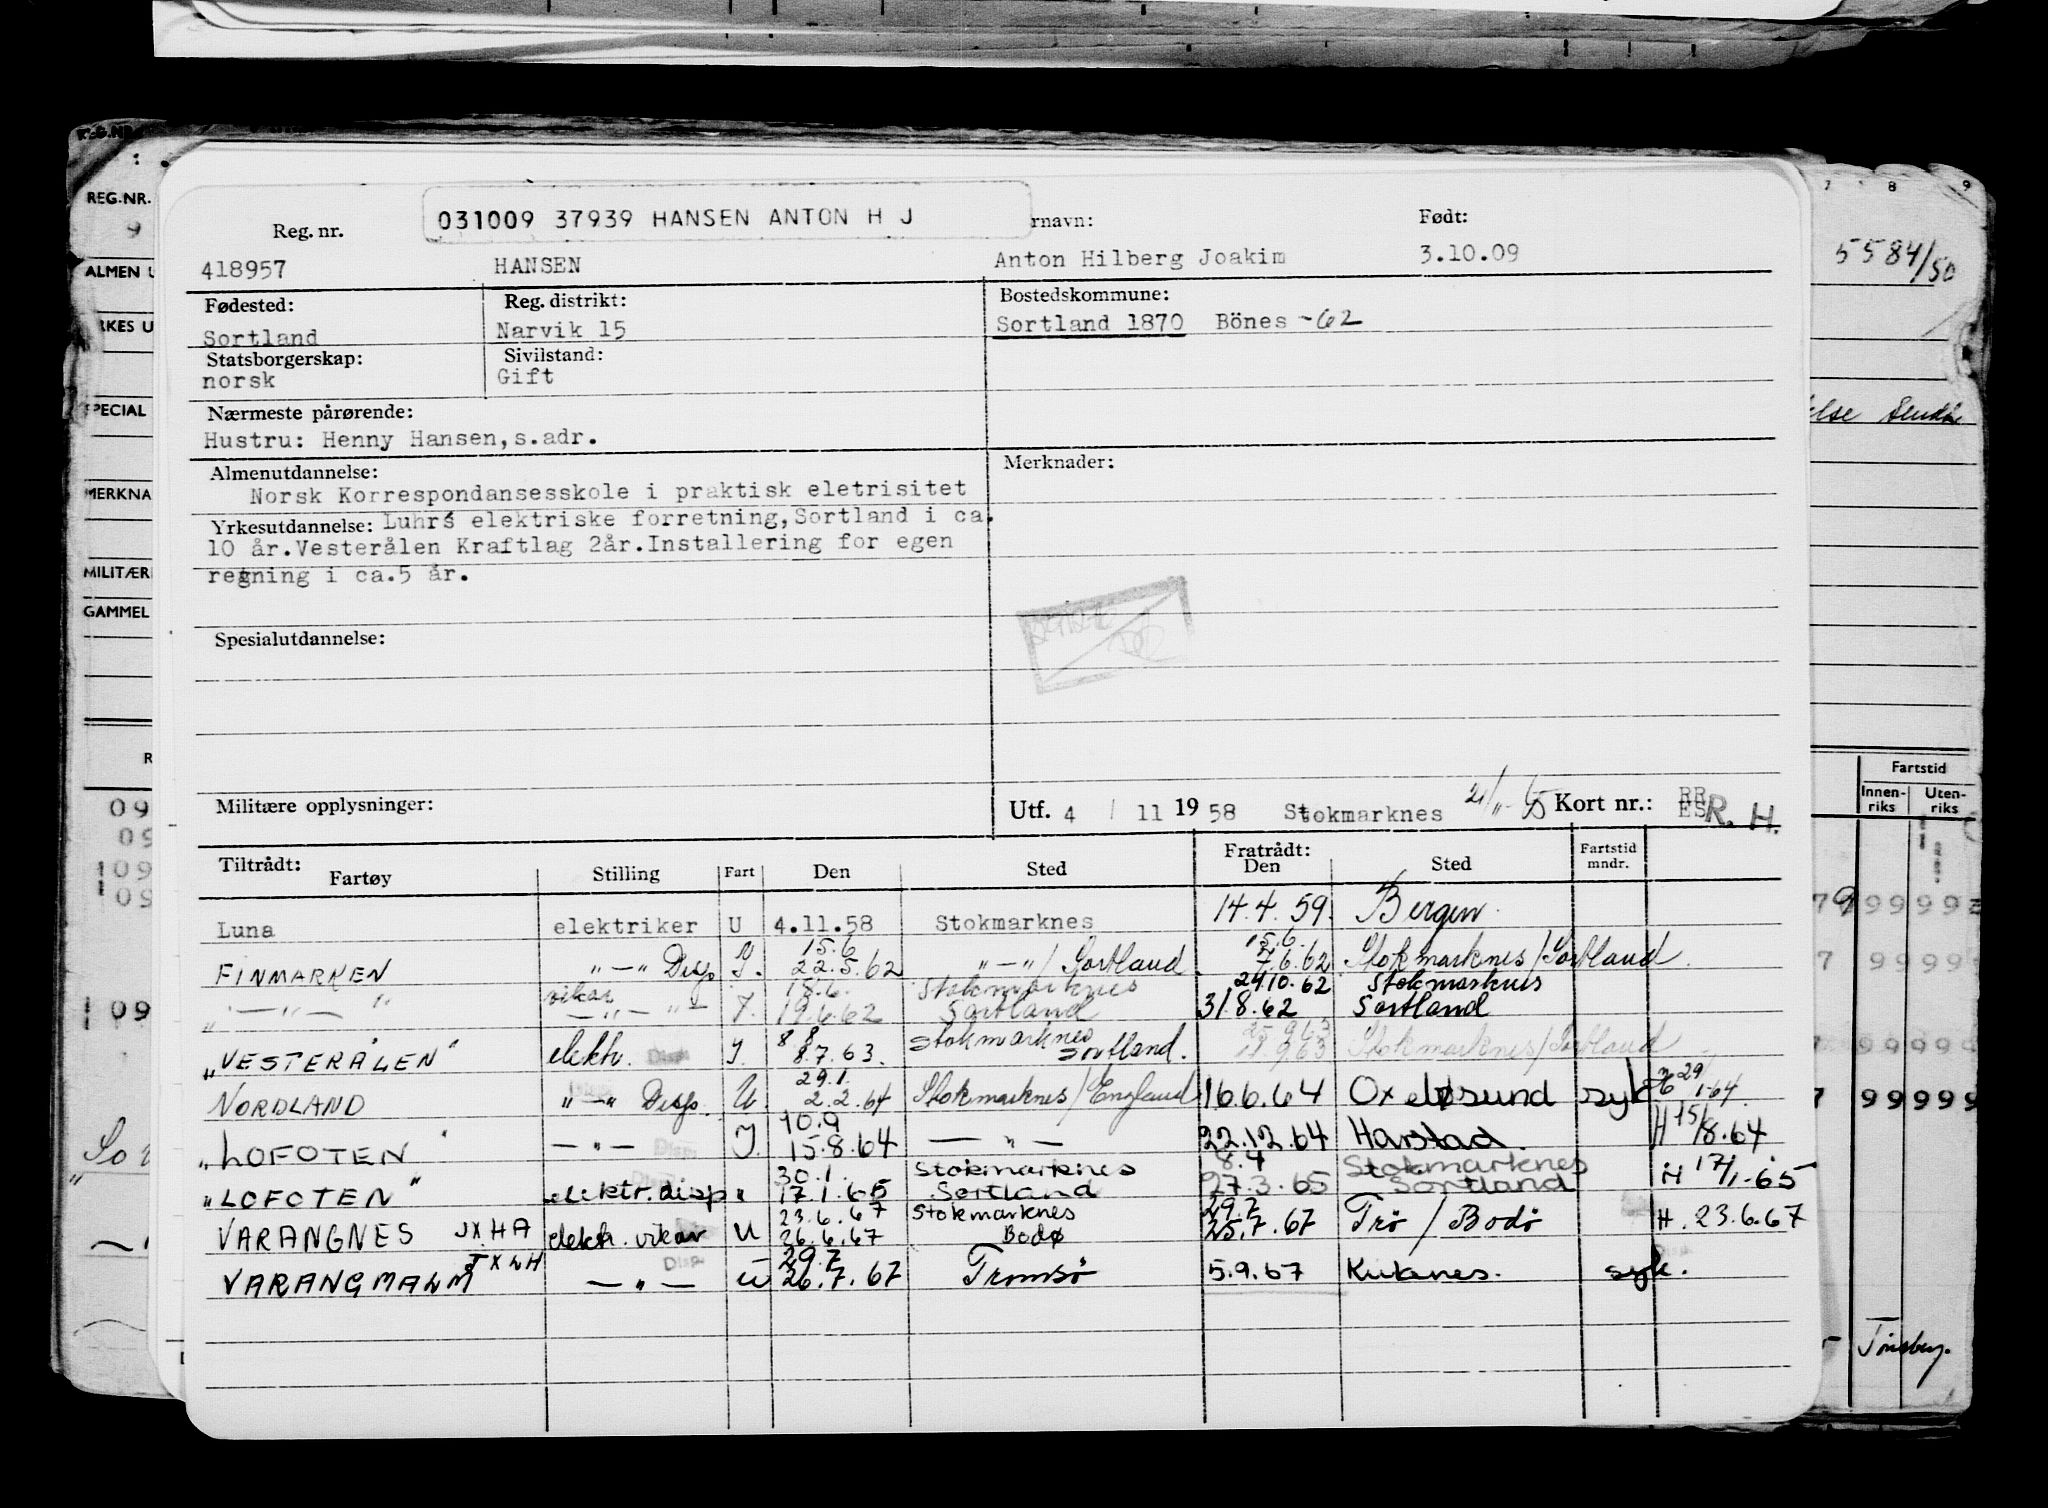 REG.NR.
9
ALMEN U
RKES U
SPECIAL
MERKNA
MILITÆR
GAMMEL
7 8 9
5584/50
else
Fartstid
Innen-
riks
Uten-
riks
031009 37939 HANSEN ANTON H J
Reg. nr. rnavn: Født:
418957 HANSEN Anton Hilberg Joakim 3.10.09
Fødested: Reg. distrikt: Bostedskommune:
Sortland Narvik 15 Sortland 1870 Bönes -62
Statsborgerskap: Sivilstand:
norsk Gift
Nærmeste pårørende:
Hustru: Henny Hansen,s.adr.
Almenutdannelse: Merknader:
Norsk Korrespondansesskole i praktisk eletrisitet
Yrkesutdannelse: Luhrs elektriske forretning,Sortland i ca.
10 år.Vesterålen Kraftlag 2år.Installering for egen
regning i ca.5 år.
Spesialutdannelse:
Militære opplysninger: Utf. 4 / 11 1958 Stokmarknes Kort nr.: R. H.
Tiltrådt: Fratrådt: Fartstid
Fartøy Stilling Fart Den Sted Den Sted mndr.
Luna elektriker U 4.11.58 Stokmarknes 14.4.59. Bergen.
15.6 15.6.
FINMARKEN "—" Disp. I. 22.5.62 "—"/Sortland 7.6.62 Stokmarknes/Sortland.
vikar 18.6. Stokmarknes 24.10.62 Stokmarknes
"—"—" —"— "— I. 19.6.62 Sortland 31.8.62 Sortland
8.8 Stokmarknes 25.9.63
"VESTERÅLEN" elektr. Disp I. 8.7.63. Sortland. Stokmarknes/Sortland
29.1.
NORDLAND "—" Disp. U. 2.2.64 Stokmarknes/England 16.6.64 Oxeløsund syk H 29/1-64.
10.9
"LOFOTEN" —"— Disp I. 15.8.64 —"— 22.12.64 Harstad. H 15/8.64
30.1. Stokmarknes 8.4 Stokmarknes
"LOFOTEN" elektr. disp " 17.1.65 Sortland 27.3.65 Sortland H 17/1.65
23.6.67 Stokmarknes 29.7
VARANGNES JXHA elektr. vikar U 26.6.67 Bodø 25.7.67 Trø / Bodø H. 23.6.67
JXLH Disp 29.7
VARANGMALM —"— U 26.7.67 Tromsø 5.9.67 Kirkenes. syk.
Tønsberg.